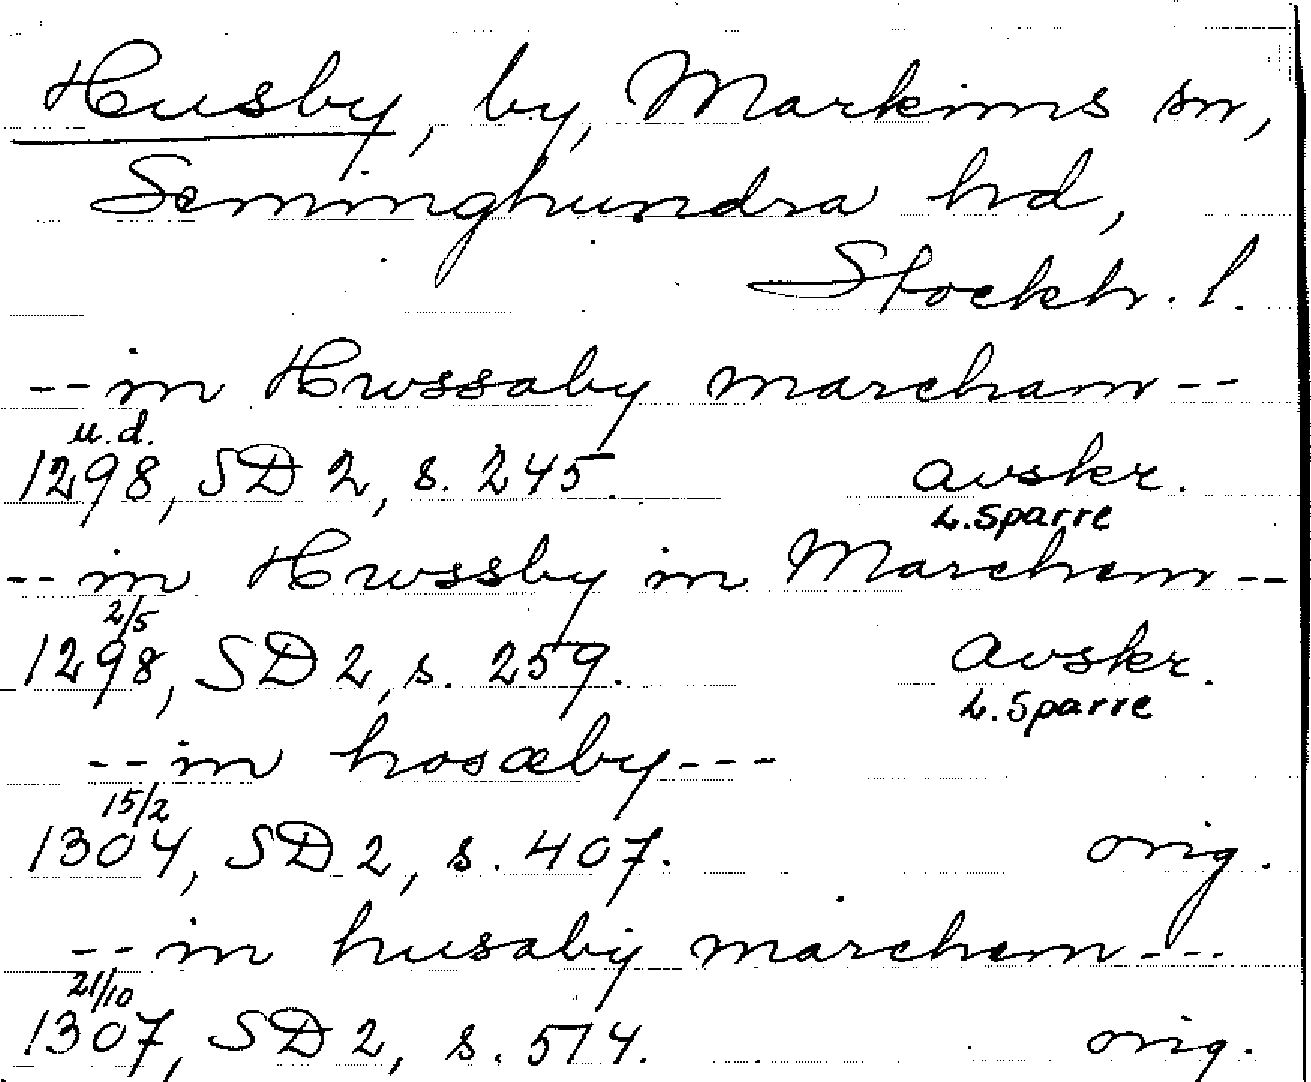 Husby, by, Markims sn,
Seminghundra hd,
Stockh. l.
-- in Hwssaby marcham --
u.d.
1298, SD 2, s. 245. avskr.
L. Sparre
-- in Hwssby in Marchem --
2/5
1298, SD 2, s. 259. avskr.
L. Sparre
-- in hosæby ---
15/2
1304, SD 2, s. 407. orig.
-- in husaby marchem ---
21/10
1307, SD 2, s. 514. orig.